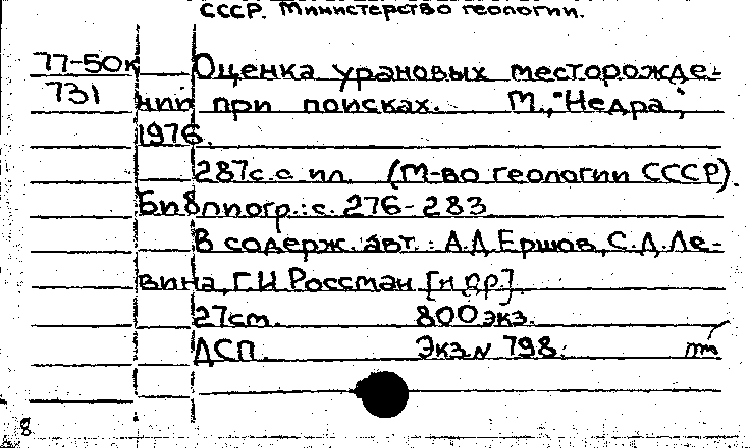 СССР. Министерство геологии.
77-50к Оценка урановых месторожде-
731 ний при поисках. М., "Недра",
1976.
287с. с ил. (М-во геологии СССР).
Библиогр.: с. 276-283
В содерж. авт.: А.Д. Ершов, С.Д. Ле-
вина, Г.И. Россман [и др].
27см. 800 экз.
ДСП. Экз. N 798.
8